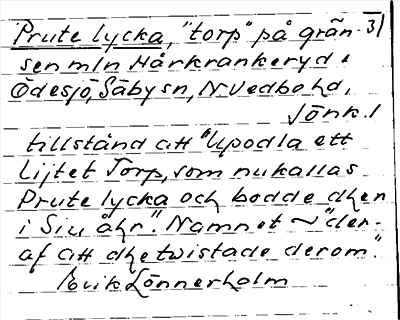 Prute lycka, "torp" på grän- 31
sen mln Hårkrankeryd i
Ödesjö, Säby sn, N Vedbo hd,
Jönk. l
tillstånd att "Upodla ett
lijtet Torp, som nu kallas
Prute lycka och bodde dher
i Siu åhr". Namnet ~ "der-
af att dhe twistade derom".
Lönnerholm